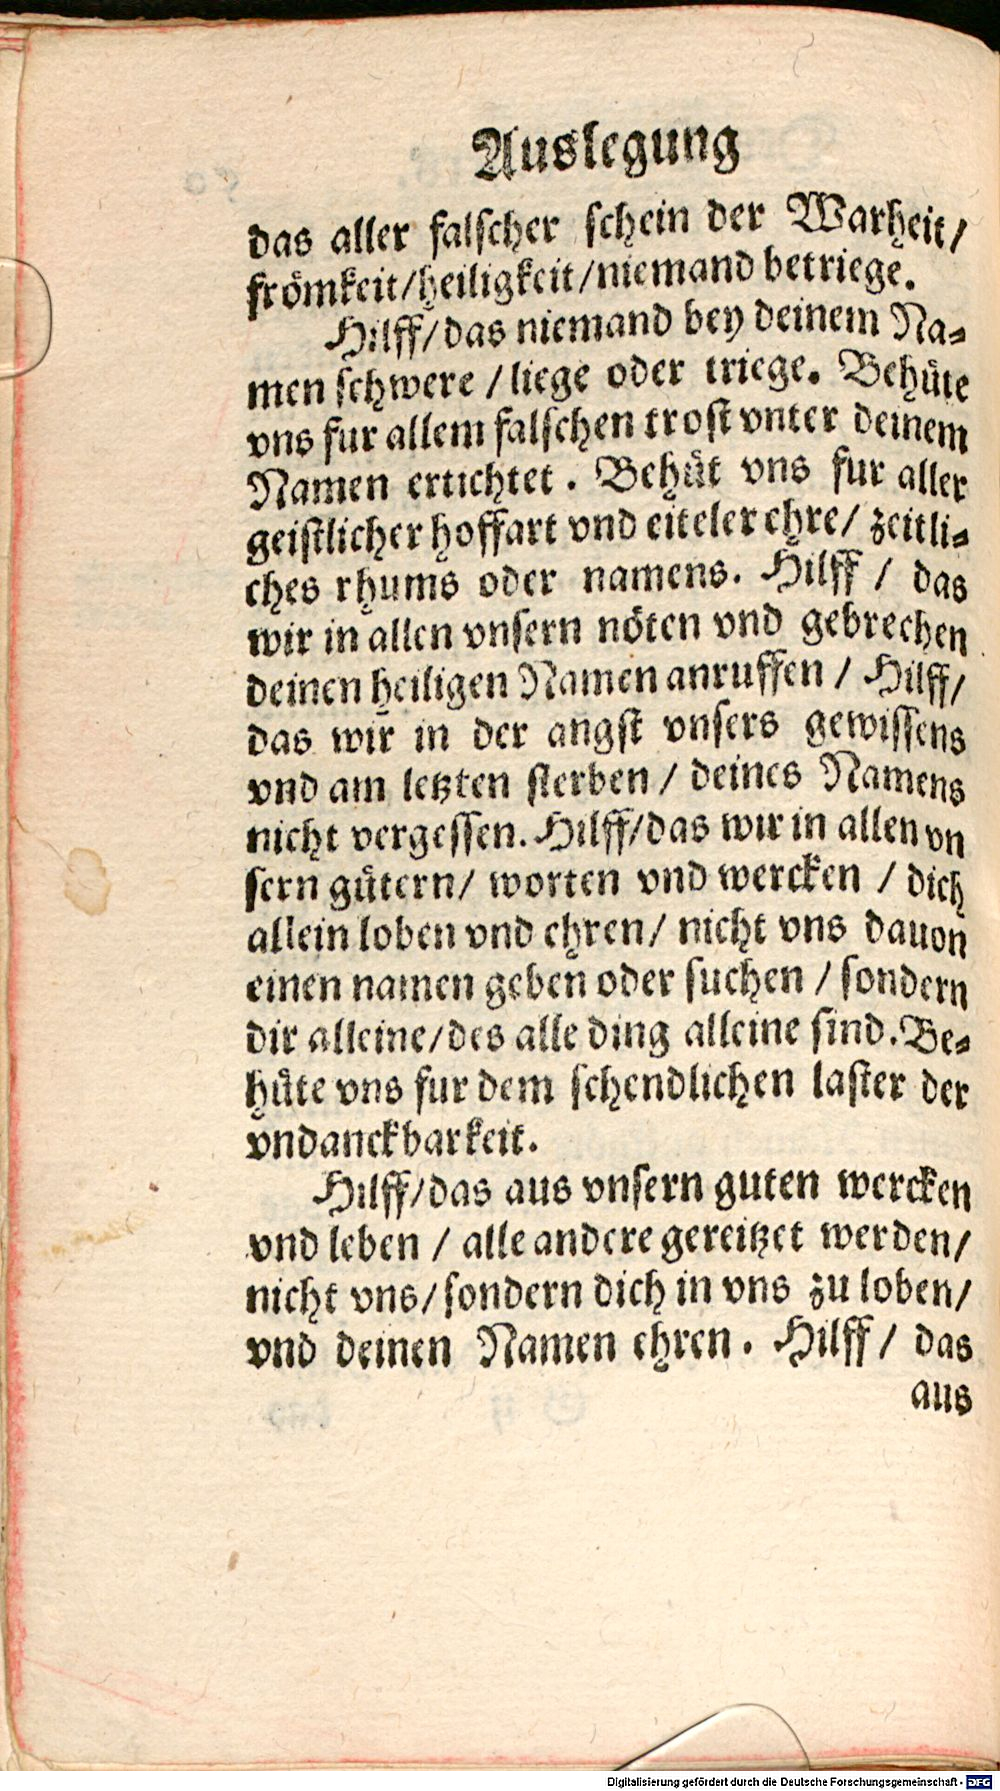 Auslegung
das aller falscher schein der Warheit/
frömkeit/heiligkeit/niemand betriege.
Hilff/das niemand bey deinem Na-
men schwere / liege oder triege. Behüte
vns fur allem falschen trost vnter deinem
Namen ertichtet. Behüt vns fur aller
geistlicher hoffart vnd eiteler ehre/ zeitli-
ches rhums oder namens. Hilff / das
wir in allen vnsern nöten vnd gebrechen
deinen heiligen Namen anruffen / Hilff/
das wir in der angst vnsers gewissens
vnd am letzten sterben / deines Namens
nicht vergessen. Hilff/das wir in allen vn
sern gütern/ worten vnd wercken / dich
allein loben vnd ehren/ nicht vns dauon
einen namen geben oder suchen / sondern
dir alleine/des alle ding alleine sind. Be-
hüte vns fur dem schendlichen laster der
vndanckbarkeit.
Hilff/das aus vnsern guten wercken
vnd leben / alle andere gereitzet werden/
nicht vns/sondern dich in vns zu loben/
vnd deinen Namen ehren. Hilff / das
aus
Digitalisierung gefördert durch die Deutsche Forschungsgemeinschaft - DFG